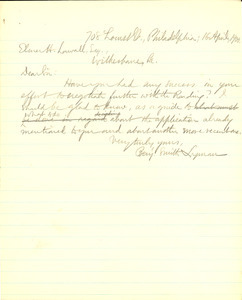 708 Locust St., Philadelphia, 16
Elmer H. Lawall, Esq.,
Wilkesbarre, Pa.
Dear Sir:
Have you had any success in your
effort to negotiate further with the Reading? I
should be glad to know, as a guide to
about the application already
mentioned to you and about another more recent one.
Very truly yours,
Benj. Smith Lyman